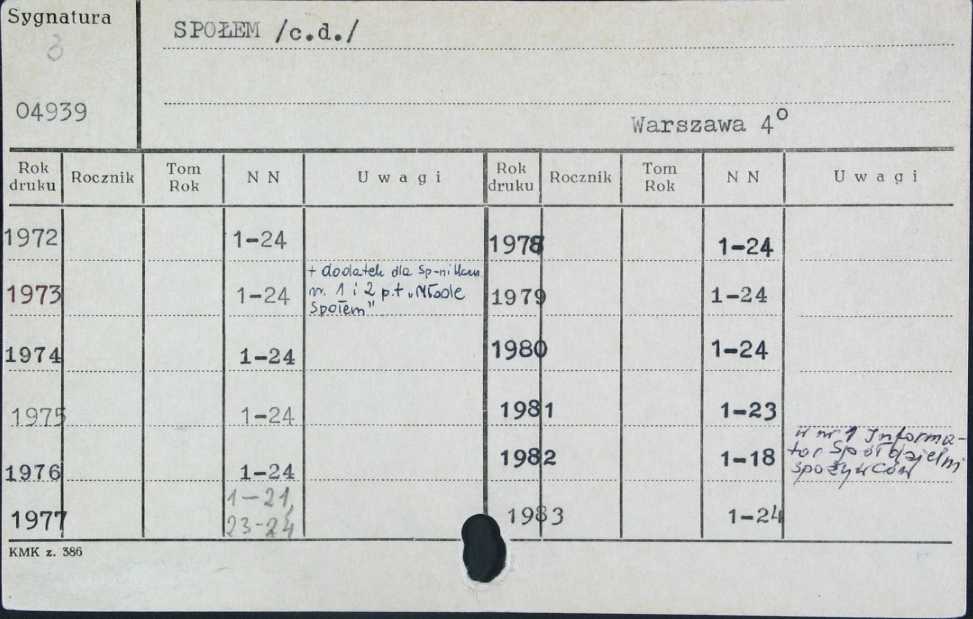 Sygnatura
3
04939
SPOŁEM /c.d./
Warszawa 4°
Rok druku Rocznik Tom Rok NN Uwagi Rok druku Rocznik Tom Rok NN Uwagi
1972 1-24 1978 1-24
1973 1-24 + dodatek dla 1979 1-24
nr. 1 i 2 p.t „Młode
Społem"
1974 1-24 1980 1-24
1975 1-24 1981 1-23
1976 1-24 1982 1-18 w nr 1 Informa-
tor Spółdzielni
spożywców
1977 1-21, 23-24 1983 1-24
KMK z. 386